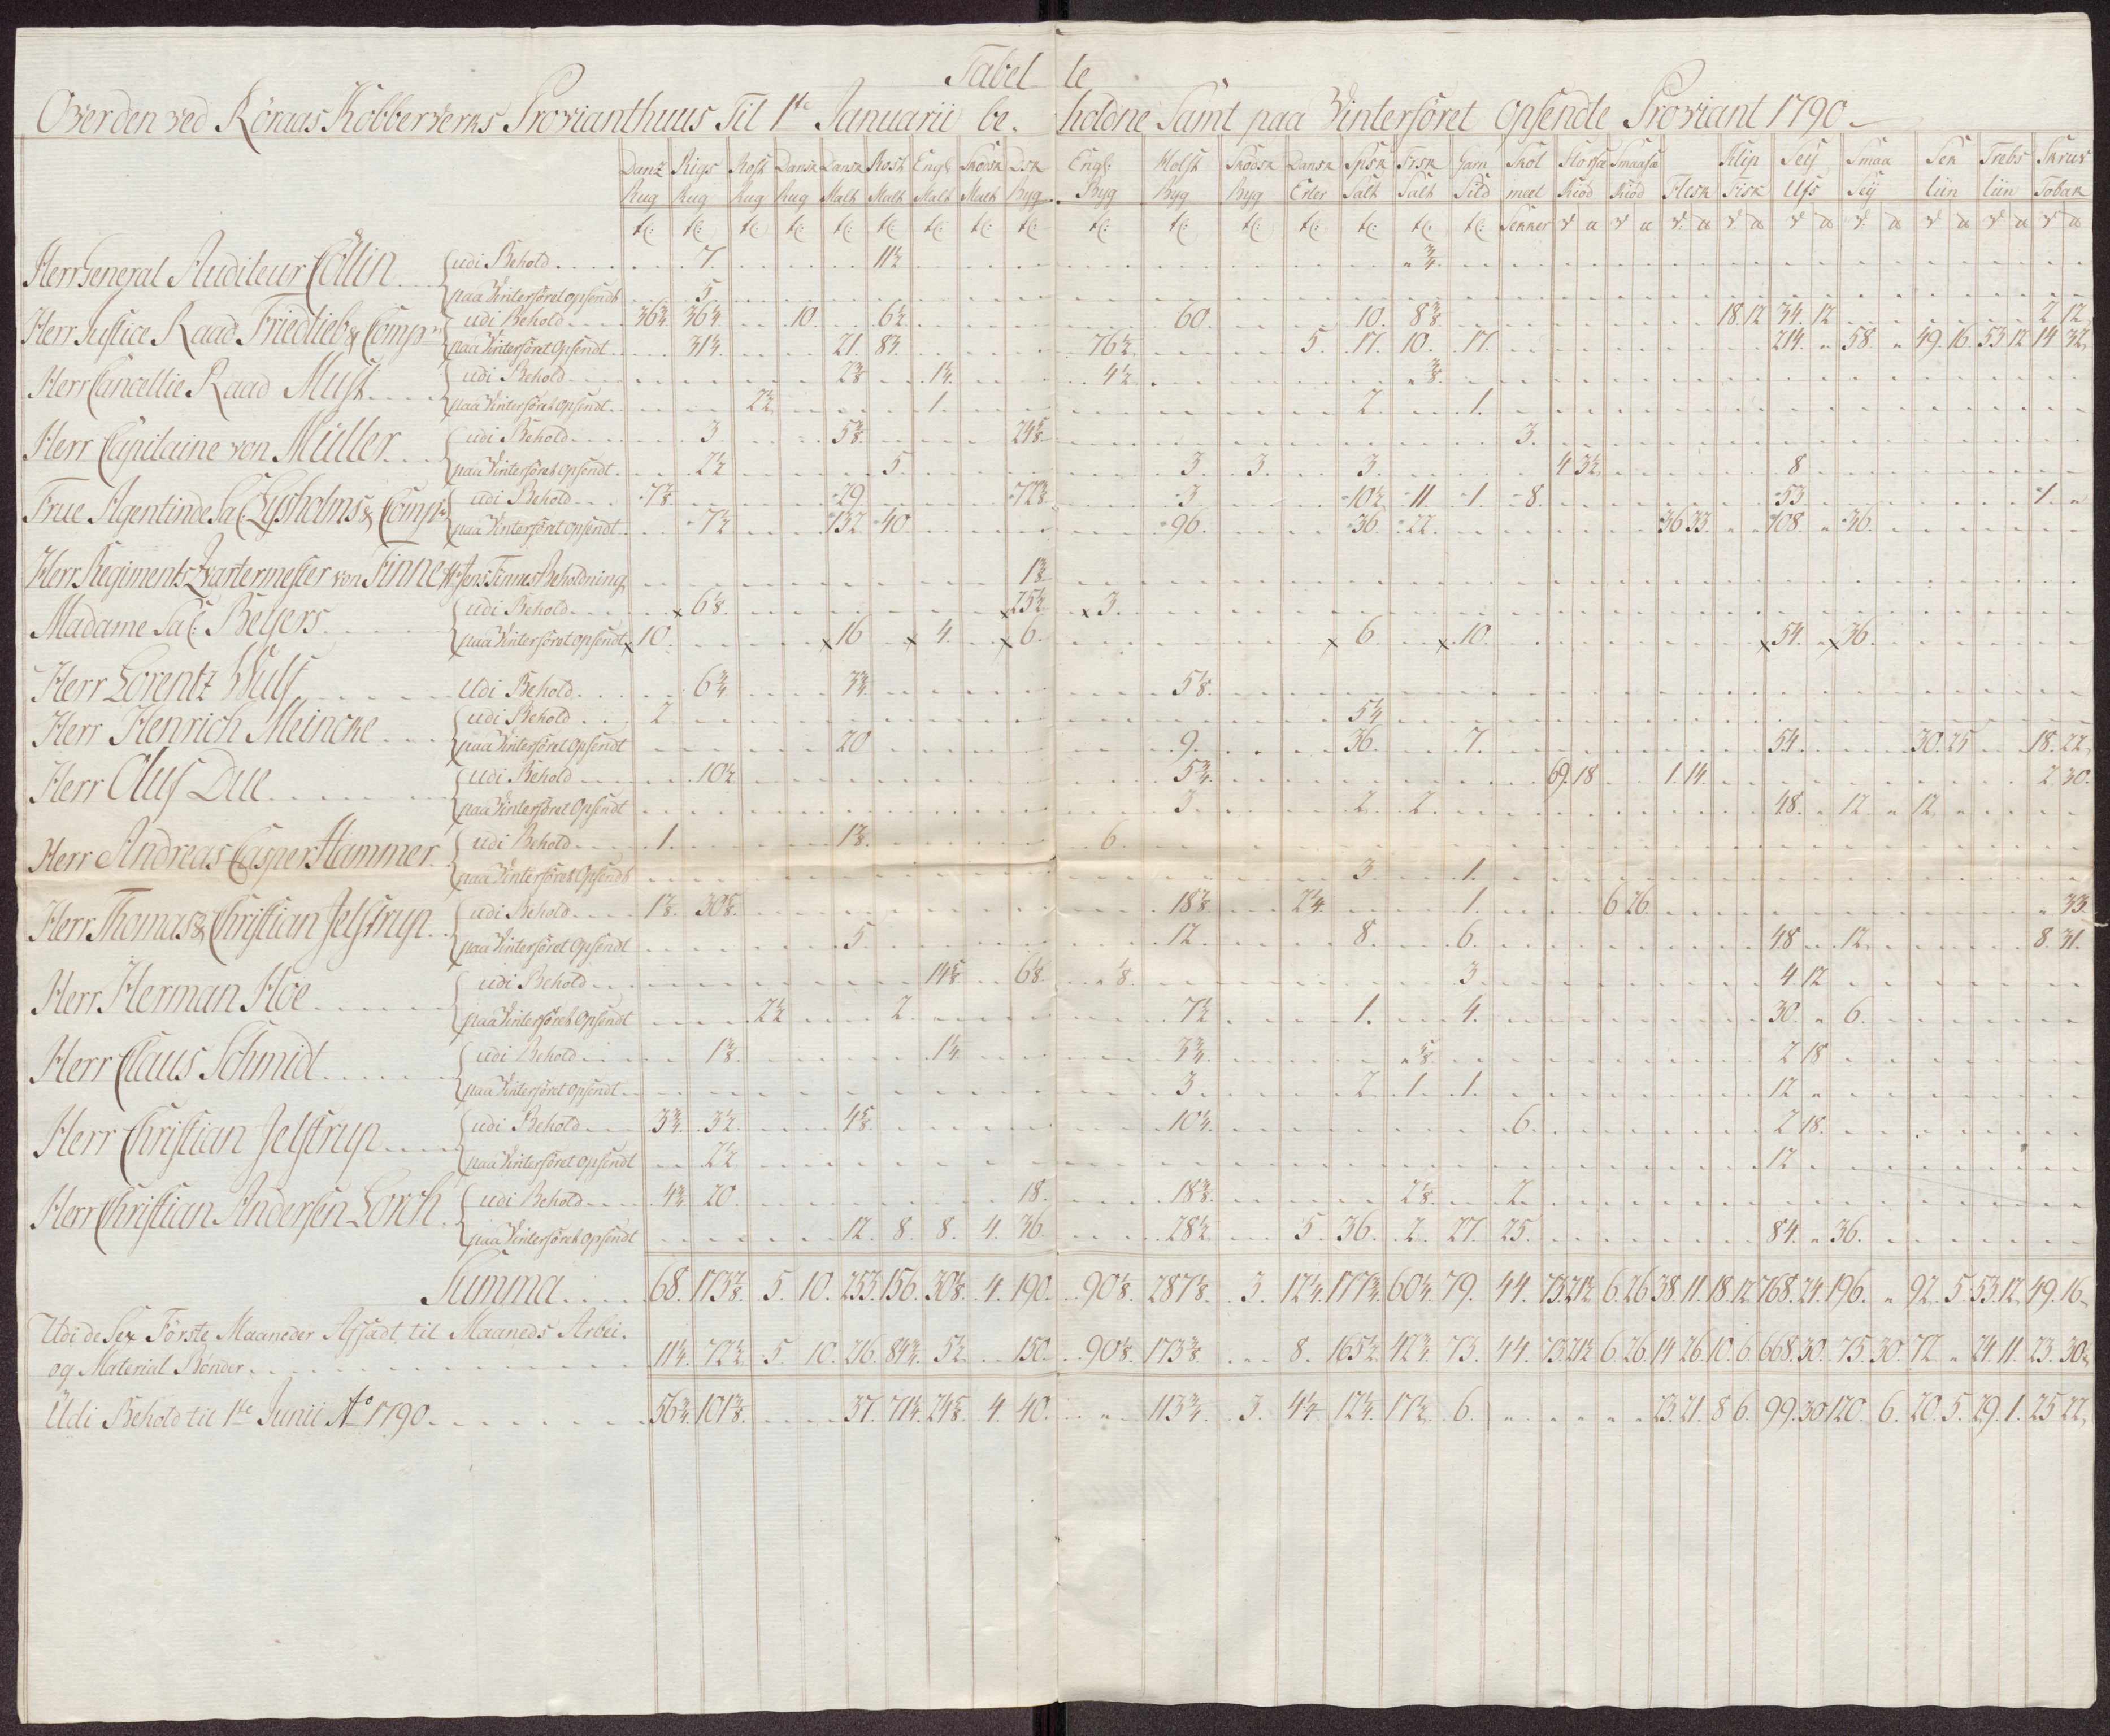 Tabelle
Over den ved Röraas Kobberverks Provianthuus Til 1te Januarii beholdne Samt paa Vinterföret Opsendte Proviant 1790
Danz Rug Rigs Rug Rost Rug Dansk Rug Dansk Malt Rost Malt Engl: Malt Skodsk Malt Dsk Byg Engl: Byg Holst Byg Skodsk Byg Dansk Erter Spsk Salt Frsk Salt Garn Sild Skol mæl Storsæ Kiöd Smaasæ Kiöd Flesk Klip Fisk Sey Ufs Smaa Seÿ Sek liin Trebs liin Skruv Tobak
Herr General Auditeur Cöllin udi Behold 7. 11½ " ¾
paa Vinterföret opsendt 5
Herr Justice Raad Friedlieb & Comp udi Behold 36¾ 36¼ 10. 6½ 60. 10. 8⅜ 18. 12 34. 12 2 12
paa Vinterföret Opsendt 31¼ 21. 83. 76½ 5. 17. 10. 17. 214. " 58. " 49. 16 53 12 14 32
Herr Cancellie Raad Must udi Behold 2⅜ 1¼ 4½ " ⅜
paa Vinterföret Opsendt 2½ 1. 2. 1.
Herr Capitaine von Müller udi Behold 3. 5⅜ 24⅝ 3.
paa Vinterföret Opsendt 2½ 5. 3. 3. 3. 4 3½ 8
Frue Agentinde Sal: Lysholms & Comp: udi Behold 7⅛ 29 72⅜ 3 10½ 11. 1. 8. 53. 1. "
paa Vinterföret Opsendt 7½ 132 40 96. 36. 22. 36 33. " " 108. " 36.
Herr Regiments Qvartermester von Finne Hr Jens Finnes Beholdning 1⅜
Madame Sal: Beyers udi Behold 6⅛ 25½ 3.
paa Vinterföret opsendt 10. 16 4. 6. 6. 10. 54. " 36.
Herr Lorentz Wulf Udi Behold 6¾ 3¾ 5⅛
Herr Henrich Meincke udi Behold 2 5¼
paa Vinterföret Opsendt 20 9. 36. 7. 54. 30. 25 18. 22
Herr Oluf Due udi Behold 10½ 5¾ 69. 18 1. 14. 2 30.
paa Vinterföret Opsendt 3 2. 2. 48. " 12. " 12
Herr Andreas Casper Hammer udi Behold 1. 1⅞ 6.
paa Vinterföret Opsendt 3. 1.
Herr Thomas & Christian Jelstrup udi Behold 1⅞ 30⅝ 18⅞ 2¼ 1. 6 26. " 33.
paa Vinterföret Opsendt 5. 12. 8. 6. 48 " 12 8. 31.
Herr Herman Hoe udi Behold 14⅝ 6⅛ " ⅛ 3 4 12
paa Vinterföret Opsendt 2½ 2. 7½ 1. 4. 30. " 6.
Herr Claus Schmidt udi Behold 1⅜ 1¼ 3¾ " ⅝ 2 18
paa Vinterföret opsendt 3 2. 1. 1. 12 "
Herr Christian Jelstrup udi Behold 3¾ 3½ 4⅝ 10¼ 6. 2 18.
paa Vinterföret opsendt 2½ 12
Herr Christian Andersen Lorch Udi Behold 4¾ 20 18. 18⅜ 2⅛ 2.
paa Vinterföret opsendt 12. 8. 8. 4. 36. 28½ 5. 36. 2. 27. 25. 84. " 36.
Summa 68. 173⅞ 5. 10. 253. 156. 30⅛ 4. 190. 90⅛ 287⅛ 3. 12¼ 177¾ 60¼ 79. 44. 73. 21½ 6. 26 38. 11. 18. 12 768. 24. 196. " 92. 5. 53. 12. 49. 16
Udi de Sex Förste Maaneder Afsadt til Maaneds Arbei.
og Material Bönder 11¼ 72½ 5. 10. 216. 84¾ 5½ 150. 90⅛ 173⅜ 8. 165½ 42¾ 73. 44. 73. 21½ 6. 26. 14 26 10. 6 668. 30. 75. 30. 72 " 24. 11. 23. 30
Udi Behold til 1te Junii Ao 1790 56¾ 101⅜ 37. 71¼ 24⅝ 4. 40. " 113¾ 3. 4¼ 12¼ 17½ 6. 23. 21. 8 6. 99. 30 120. 6. 20. 5. 29. 1. 25 22